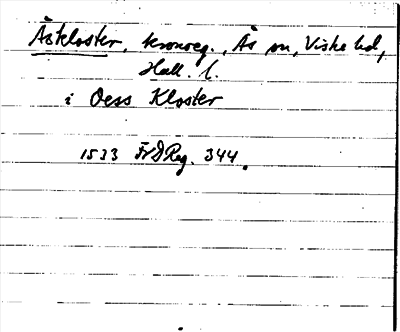 Åskloster, kronoeg., Ås sn, Viske hd,
Hall. l.
i Oess Kloster
1533 FrDReg. 344.